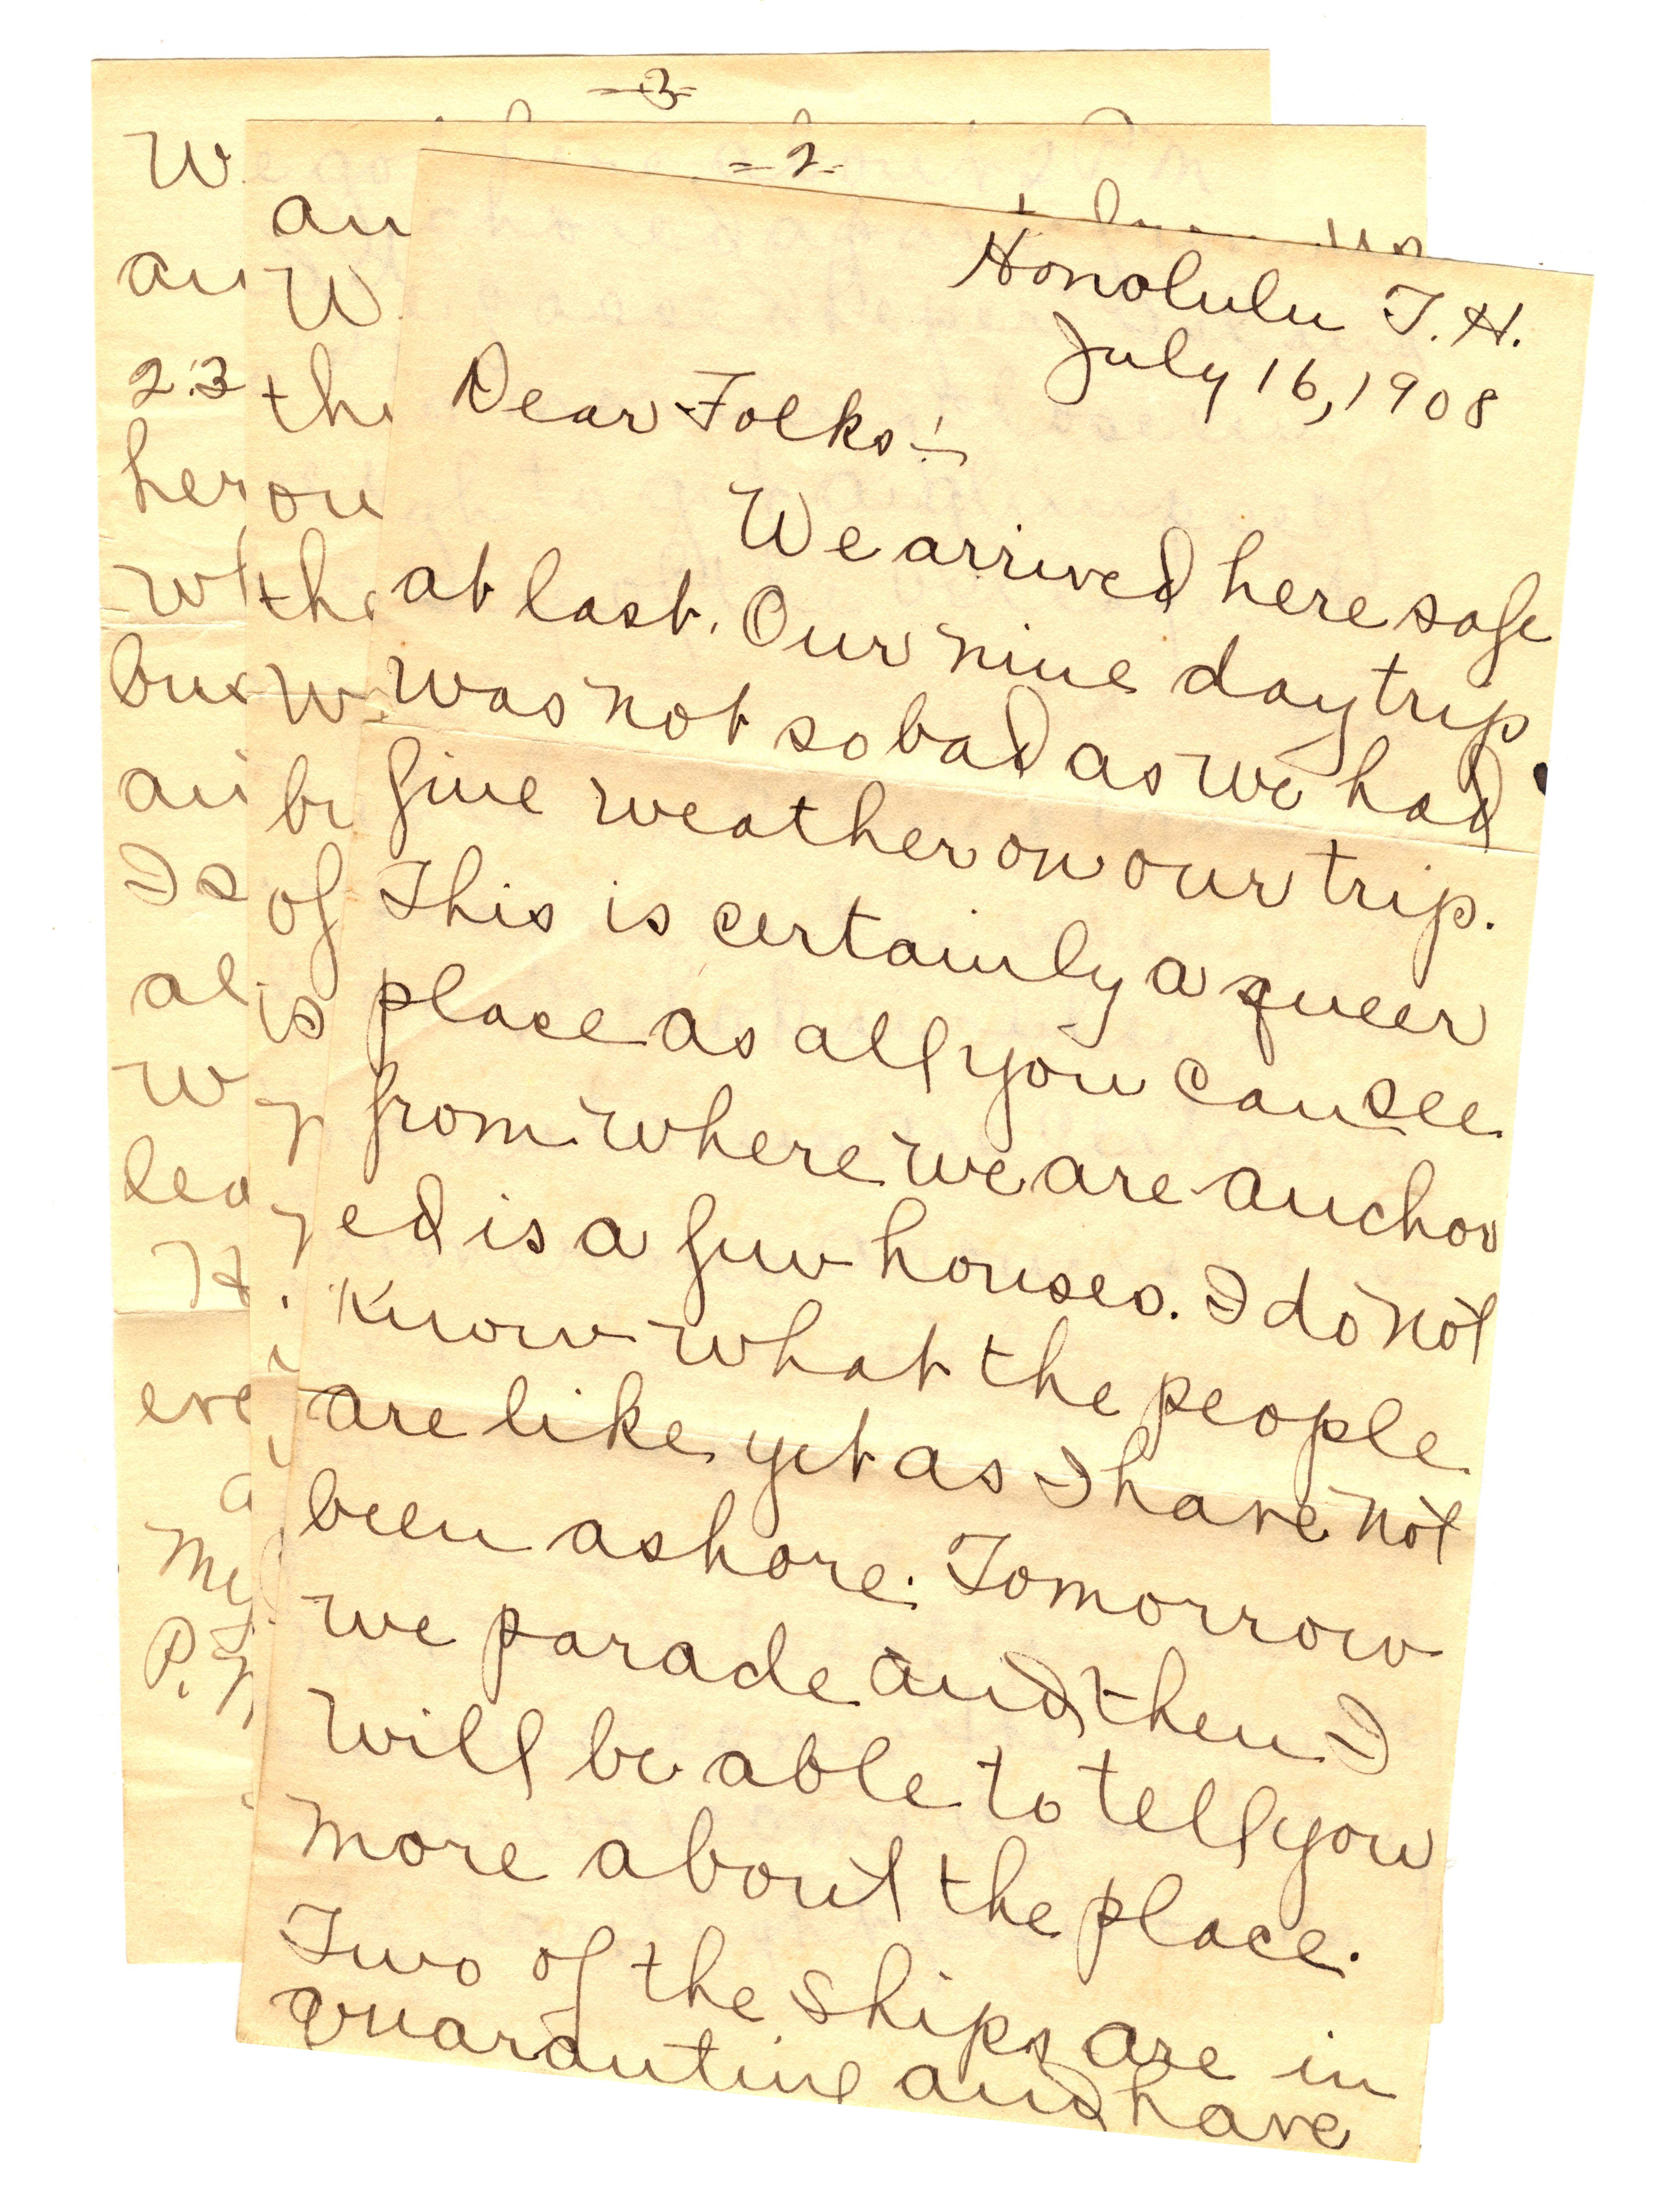 Honolulu T. H.
July 16, 1908
Dear Folks:—
We arrived here safe
at last. Our nine day trip
was not so bad as we had
fine weather on our trip.
This is certainly a queer
place as all you can see
from where we are anchor
ed is a few houses. I do not
know what the people
are like yet as I have not
been ashore. Tomorrow
we parade and then I
will be able to tell you
more about the place.
Two of the ships are in
quarantine and have
-2-
of
is
-3-
23